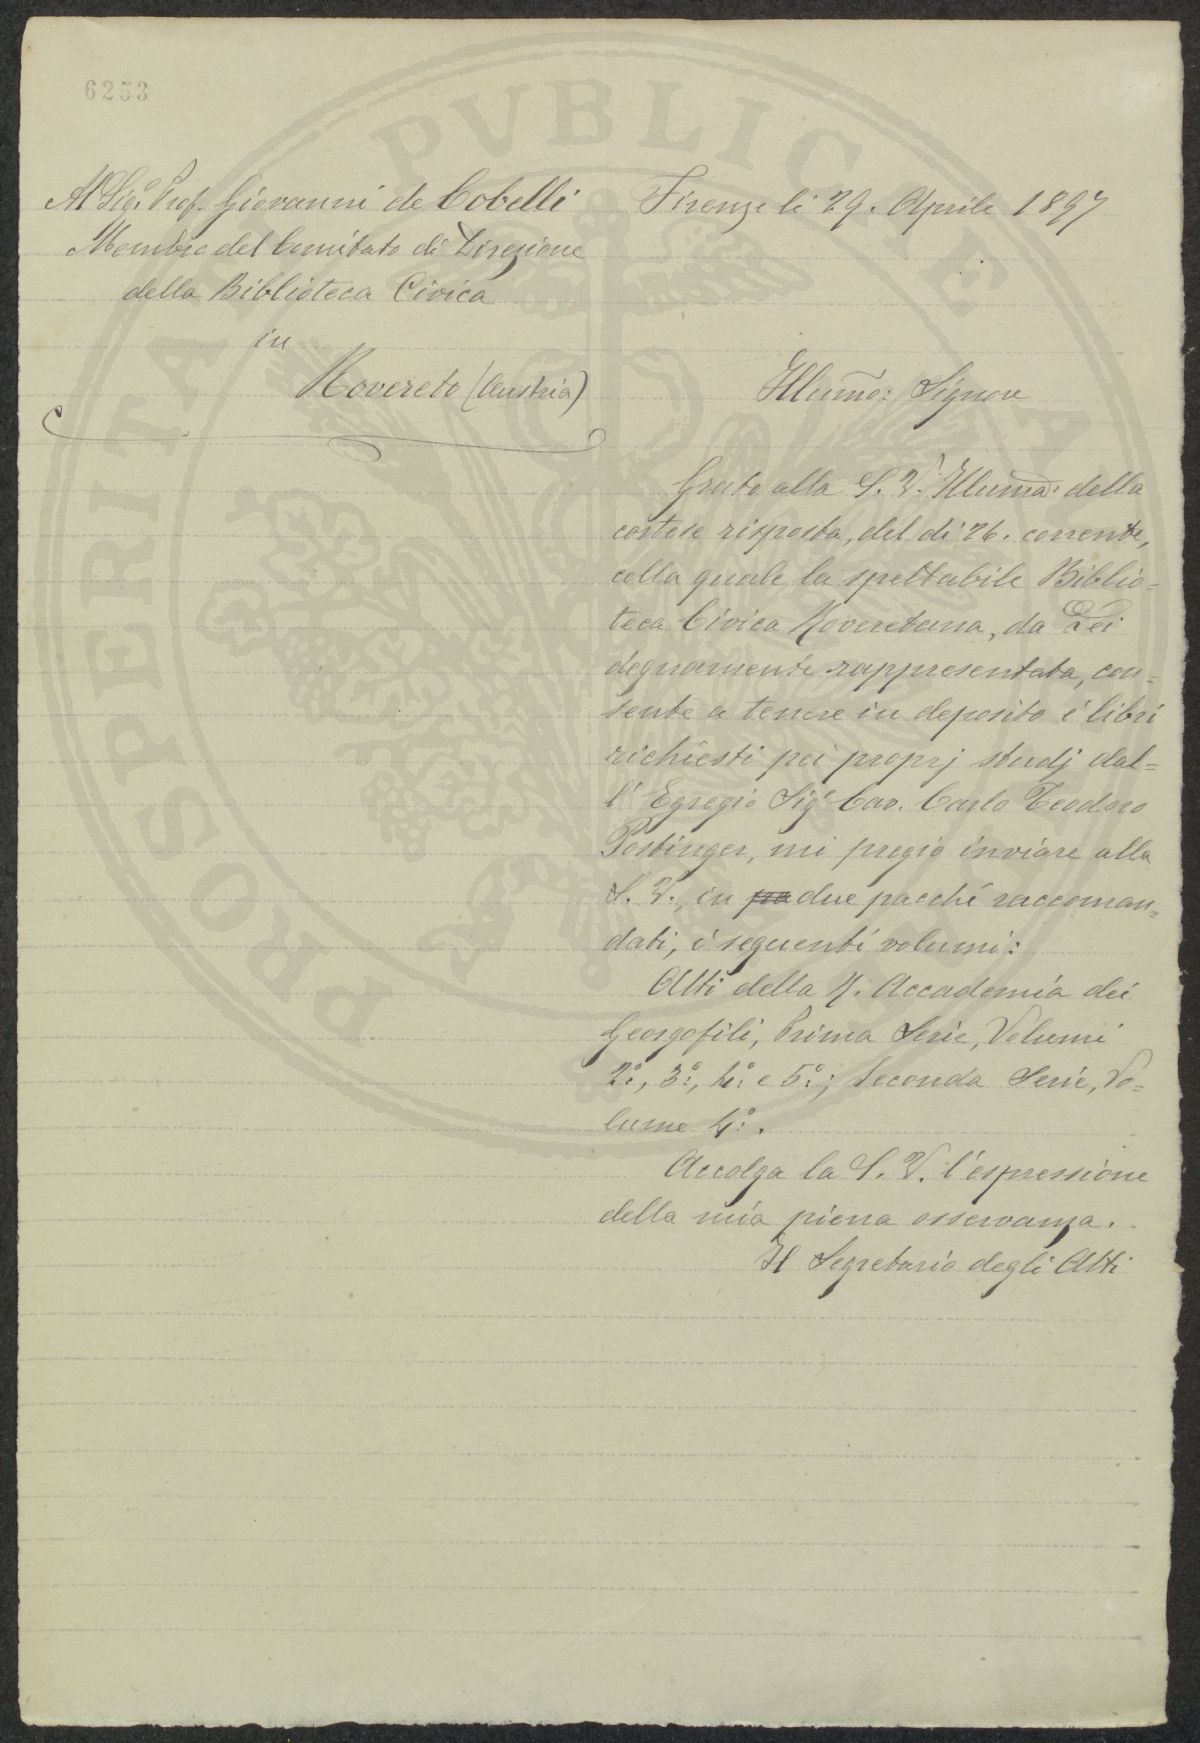 6253
Al Sigr. Prof. Giovanni de Cobelli
Membro del Comitato di Direzione
della Biblioteca Civica
in
Rovereto (Austria)
Firenze li 29. Aprile 1897
Illumo: Signore
Grato alla S. V. Illuma: della
cortese risposta, del dì 26. corrente,
colla quale la spettabile Biblio=
teca Civica Roveretana, da Lei
degnamente rappresentata, con=
sente a tenere in deposito i libri
richiesti pei proprj studj dal=
l'Egregio Sigr Cav. Carlo Teodoro
Postinger, mi pregio inviare alla
S. V., in pa due pacchi raccoman=
dati, i seguenti volumi:
Atti della R. Accademia dei
Georgofili, Prima Serie, Volumi
2º:, 3º:, 4º: e 5º:; Seconda Serie, Vo=
lume 4º:.
Accolga la S. V. l'espressione
della mia piena osservanza.
Il Segretario degli Atti
PROSPERITATI PVBLICAE AV